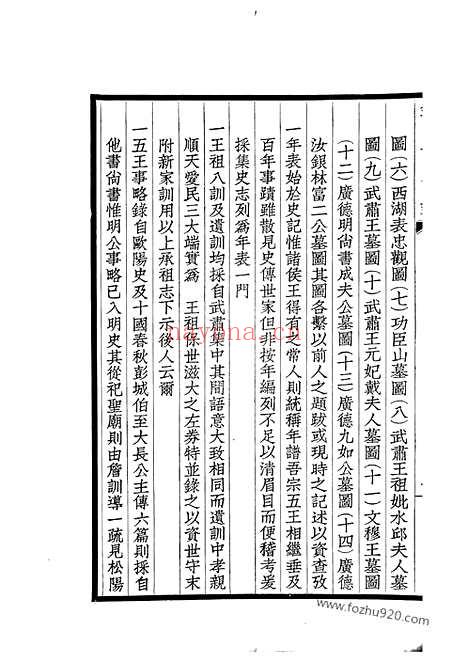 圖（六）西湖表忠觀圖（七）功臣山墓圖（八）武肅王祖妣水邱夫人墓
圖（九）武肅王墓圖（十）武肅王元妃戴夫人墓圖（十一）文穆王墓圖
（十二）廣德明尚書成夫公墓圖（十三）廣德九如公墓圖（十四）廣德
汝銀林富二公墓圖其圖各繫以前人之題跋或現時之記述以資查攷
一年表始於史記惟諸侯王得有之常人則統稱年譜吾宗五王相繼垂及
百年事蹟雖散見史傳世家但非按年編列不足以清眉目而便稽考爰
採集史志列爲年表一門
一王祖八訓及遺訓均採自武肅集中其間語意大致相同而遺訓中孝親
順天愛民三大端實爲　王祖保世滋大之左券特並錄之以資世守末
附新家訓用以上承祖志下示後人云爾
一五王事略錄自歐陽史及十國春秋彭城伯至大長公主傳六篇則採自
他書尚書惟明公事略已入明史其從祀聖廟則由詹訓導一疏見松陽
nayona.cn
www.fozhu920.com